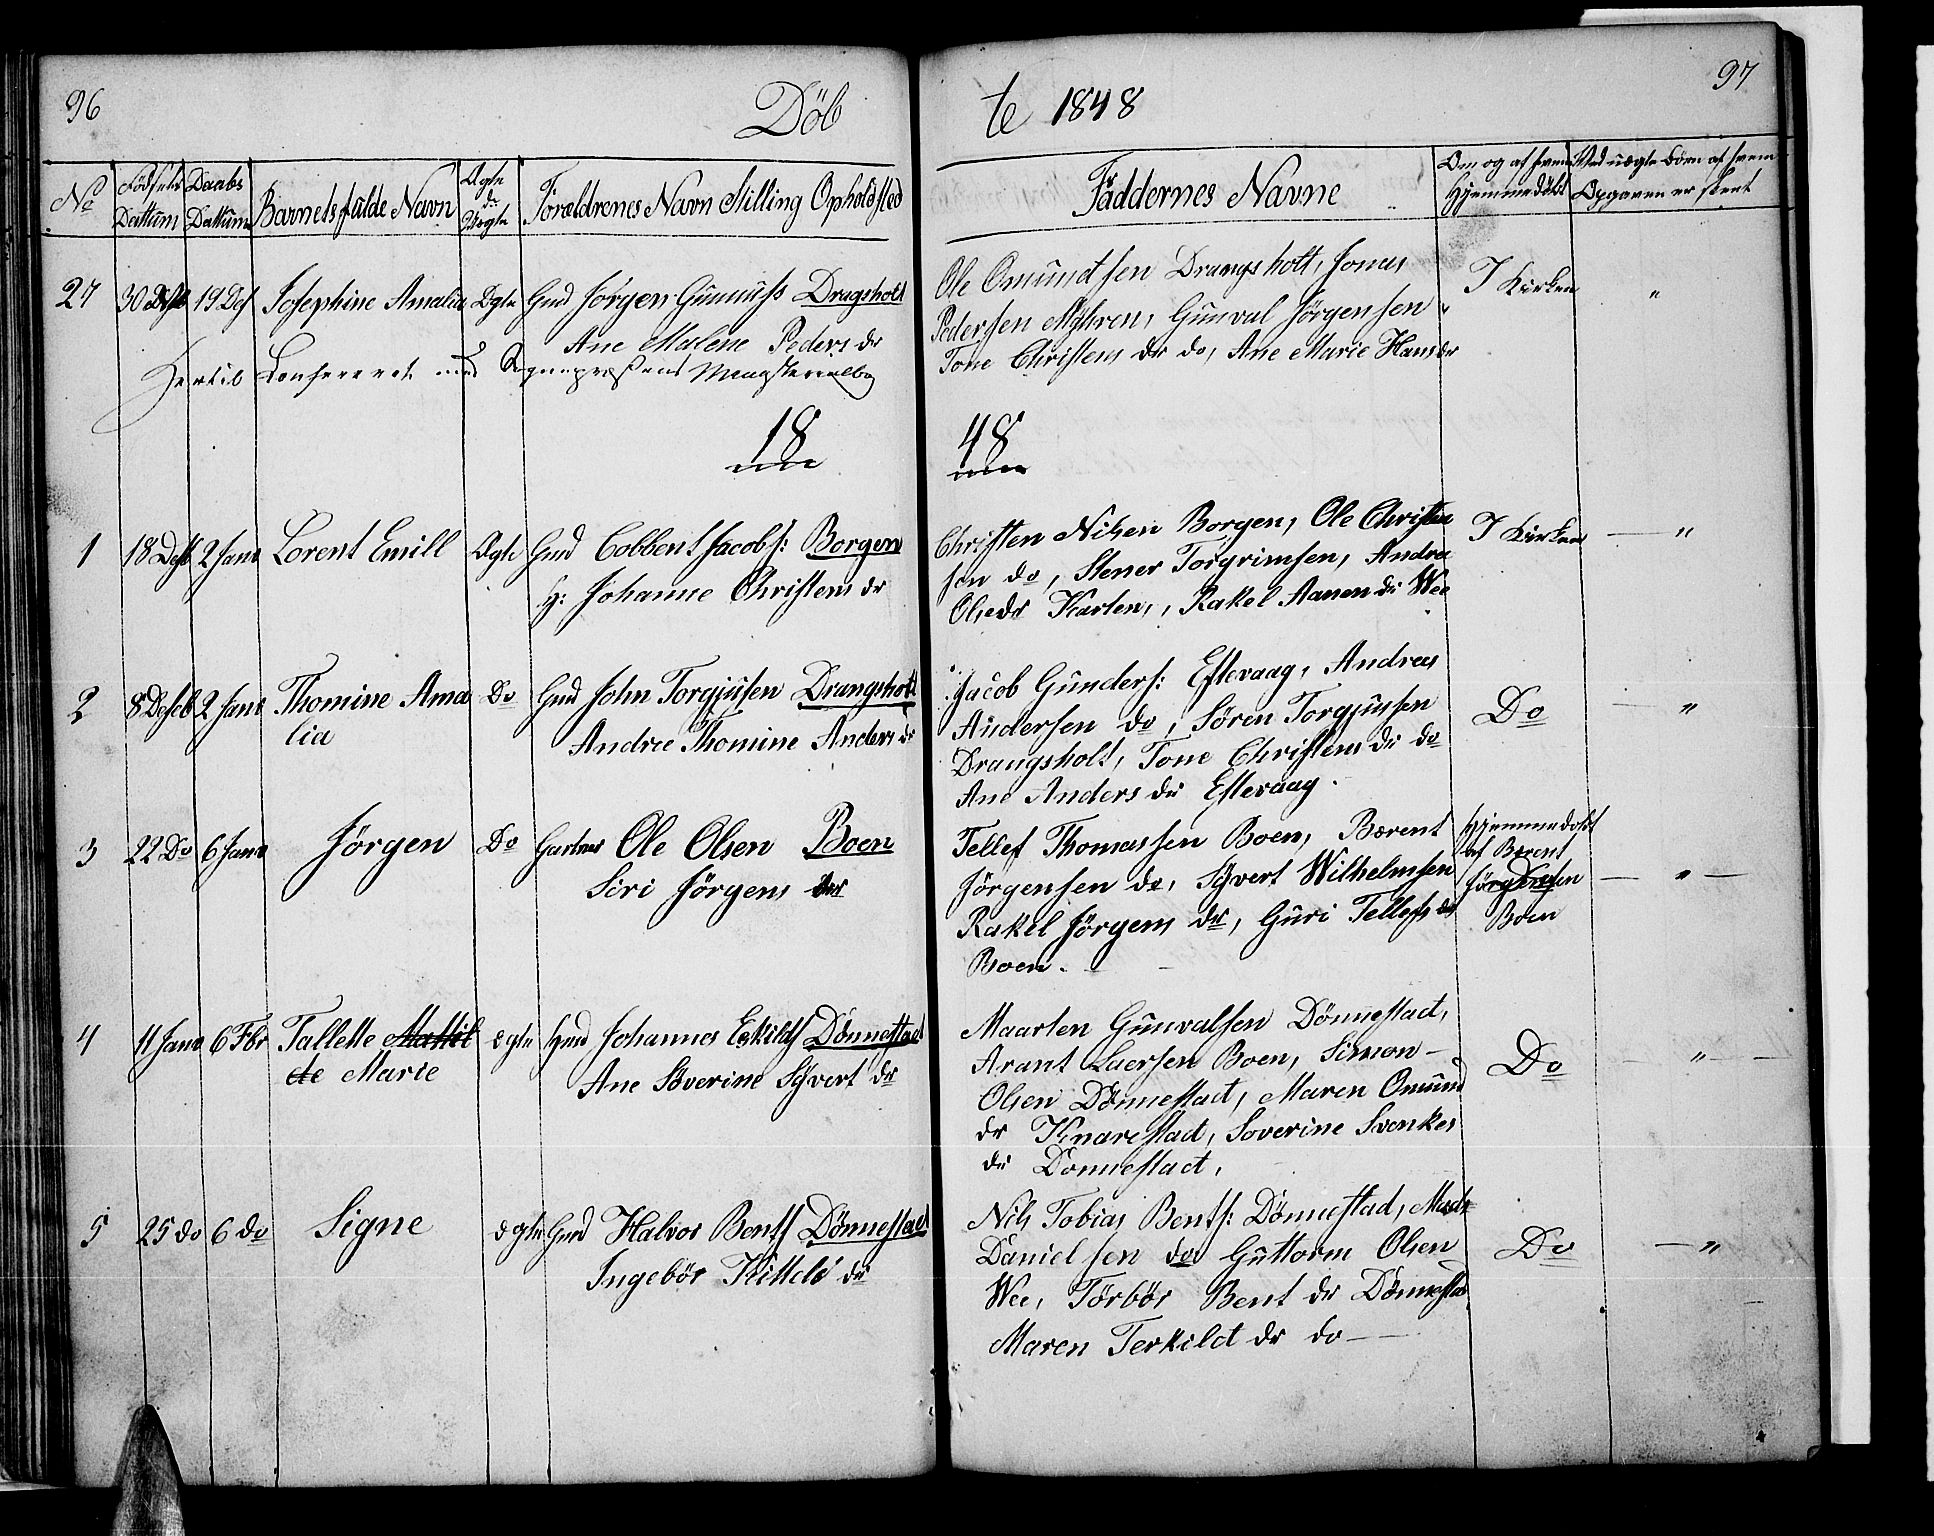 96
Döb
te 1848
97
No
Födsels Dattum
Daabs Dattum
Barnets fulde Navn
Ægte el. Uægte
Forældrenes Navn Stilling Opholdsted
Faddernes Navne
Om og af hvem Hjemmedöbt
Ved uægte Börn af hvem Opgaven er skeet
27 30 19 Josephine Amalia Ægte Gmd Jörgen Gunnufs Dragsholt
Ane Malene Peders dr
Hertil Confereret med Sognepræstens Ministerialbog
Ole Omundtsen Drangsholt, Jonas
Pedersen Myhren, Gunval Jörgensen "
Tone Christens dr do, Ane Marie Hans dr
I Kirken "
18 48
1 18 Desb 2 Janr Lorent Emill Ægte Gmd Cobbent Jacobs: Borgen
H: Johanne Christens dr
Christen Nilsen Borgen, Ole Christen
sen do, Stener Torgrimsen, Andrea
Olsedr Karten, Rakel Aanen dr Wee
I Kirken — "
2 8 Deseb 2 Janr Thomine Ama
lia
Do Gmd John Torgjusen Drangsholt
Andrea Thomine Anders dr
Jacob Gunders: Eftevaag, Andreas
Andersen do, Sören Torgjussen
Drangsholt, Tone Christens dr do
Ane Anders dr Eftevaag.
Do — "
3 22 Do 6 Janr Jörgen Do Ole Olsen Boen
Siri Jörgens dr
Tellef Thomassen Boen, Bærent
Jörgensen do, Syvert Wilhelmsen
Rakel Jörgens dr, Guri Tellefs dr
Boen.
Hjemmedöbt
af Bærent
Jörgensen
Boen
— " —
4 11 Janr 6 Fbr Tallette Mattil
de Marie
egte Gmd Johannes Eskilds Dönnestad
Ane Söverine Syvert dr
Maarten Gunvalsen Dönnestad,
Arant Laersen Boen, Simon
Olsen Dönnestad, Maren Omund
dr Knarestad, Soverine Svenkes
dr Donnestad,
Do — " —
5 25 do 6 do Signe egte Gmd Halvor Bents Dönnestad
Ingebör Kittels dr
Nils Tobias Bents: Dönnestad, Mads
Danielsen do Guttorm Olsen
Wee, Törbör Bent dr Dönnestad
Maren Terkild dr do —
Do — "